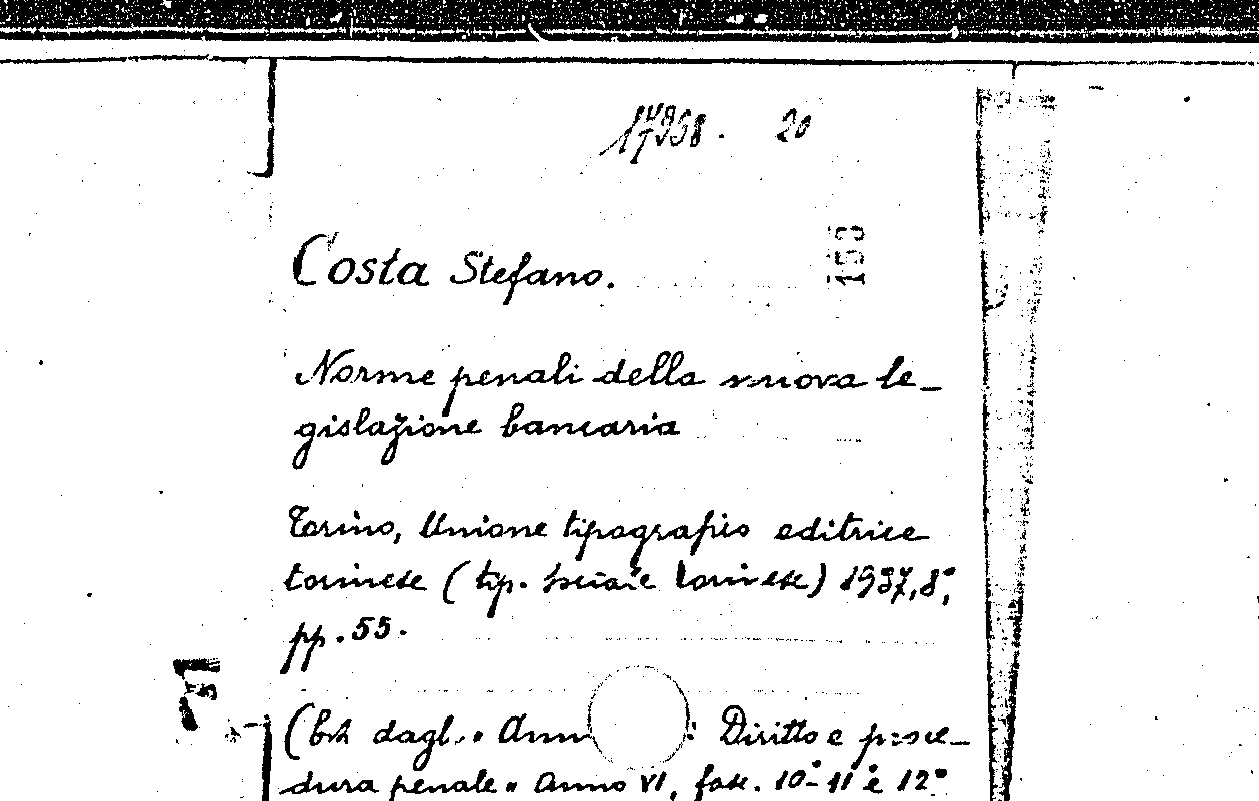 17998. 20
153
Costa Stefano.
Norme penali della nuova le_
gislazione bancaria
Torino, Unione tipografico editrice
torinese (tip. sociale torinese) 1937, 8°,
pp. 55.
(Estr. dagl. " Ann : Diritto e proce_
dura penale " Anno VI, fasc. 10°-11° e 12°